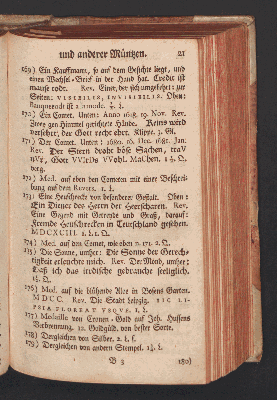 und anderer Müntzen. 21
169) Ein Kauffmann, so auf dem Gesichte liegt, und
einen Wechsel-Brief in der Hand hat. Credit ist
mause todt. Rev. Einer, der sich umgekehrt: zur
Seiten: VISIBILIS, INVISIBILIS. Oben:
Banquerout ist a la mode.
170) Ein Comet. Unten: Anno 1618. 19. Nov. Rev.
Zwey gen Himmel gerichtete Hände. Keins wird
versehret, der Gott recht ehrt. Klippe. 3. Gl.
171) Der Comet. Unten: 1680. 16. Dec. 1681. Jan.
Rev. Der Stern droht böse Sachen, traV
nVr, Gott VVIrDs VVohL MaChen. 1 ½. Q.
verg.
172) Med. auf eben den Cometen mit einer Beschrei-
bung auf dem Revers. 1. ℥.
173) Eine Heuschrecke von besonderer Gestalt. Oben:
Ein Diener des Herrn der Heerscharen. Rev.
Eine Gegend mit Getreyde und Graß, darauf:
Fremde Heuschrecken in Teutschland gesehen.
MDCXCIII.
174) Med. auf den Comet, wie oben n. 171. 2. Q.
175) Die Sonne, umher: Die Sonne der Gerech-
tigkeit erleuchte mich. Rev. Der Mond, umher:
Laß ich das irrdische gebrauche seeliglich.
176) Med. auf die blühende Aloe in Bosens Garten.
MDCC. Rev. Die Stadt Leipzig. SIC LI-
PSIA FLOREAT VSQVE. 1. ℥.
177) Medaille von Cronen-Gold auf Joh. Hussens
Verbrennung. 12. Goldgüld. von bester Sorte.
178) Dergleichen von Silber. 2. ℥.
179) Dergleichen von andern Stempel.
B 3 180)